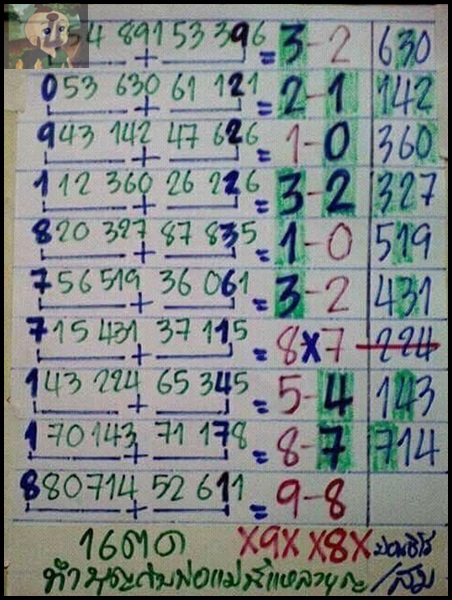 54 891 + 53 396 = 3-2 630
053 630 + 61 121 = 2-1 142
943 142 + 47 626 = 1-0 360
112 360 + 26 226 = 3-2 327
820 327 + 87 835 = 1-0 519
756 519 + 36 061 = 3-2 431
715 431 + 37 115 = 8x7 224
143 224 + 65 345 = 5-4 143
170 143 + 71 178 = 8-7 714
880714 + 52 611 = 9-8
16ตค x9x x8x
ทำบุญกับพ่อแม่